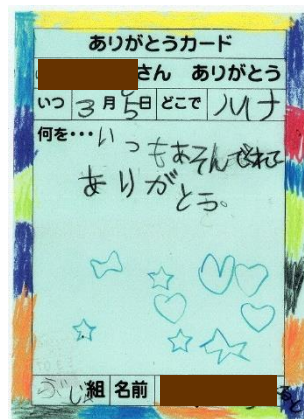 ありがとうカード
さん ありがとう
いつ 3月5日 どこで
何を・・・いつもあそんでくれて
ありがとう。
ふじ組 名前